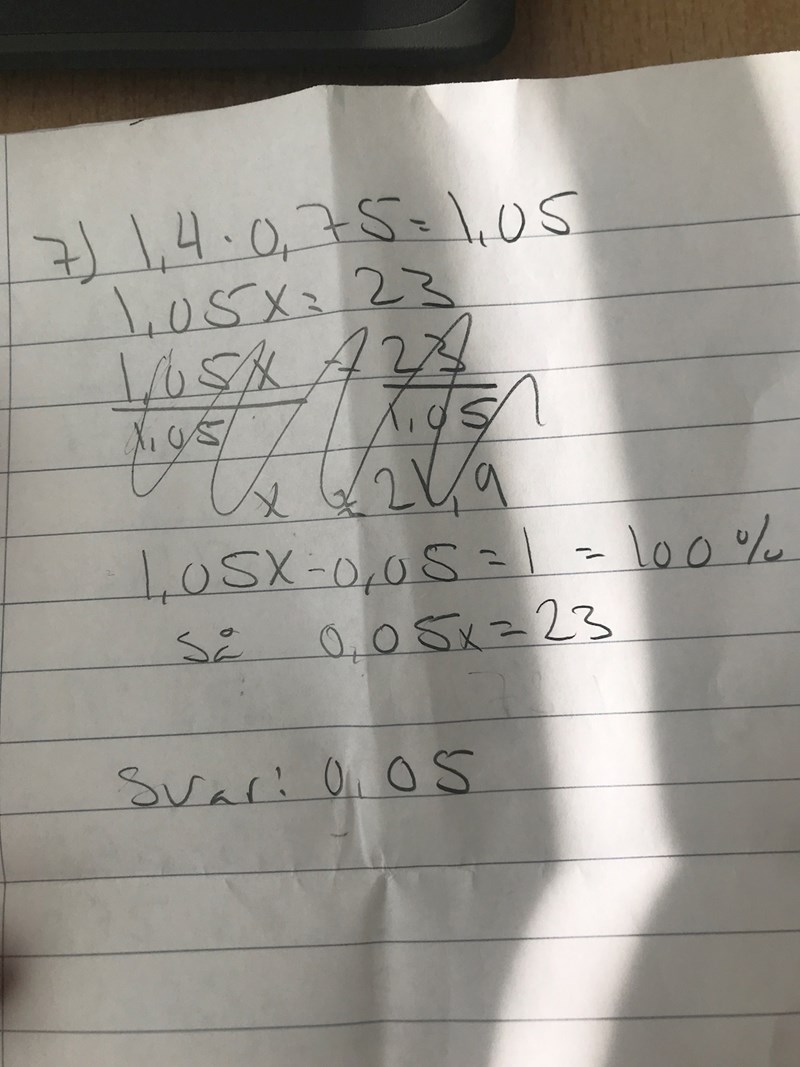 7) 1,4 · 0,75 = 1,05
1,05x = 23
1,05x = 23
1,05 1,05
x = 21,9
1,05x - 0,05 = 1 = 100%
Så 0,05x = 23
Svar: 0,05